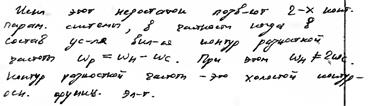 этот недостаток 2-х конт.
парам. системы, в частности когда в
состав ус-ля контур разностной
частоты ωp = ωн − ωc. При этом ωн ≠ 2ωc.
Контур разностной частоты - это холостой контур -
осн. эл-т.